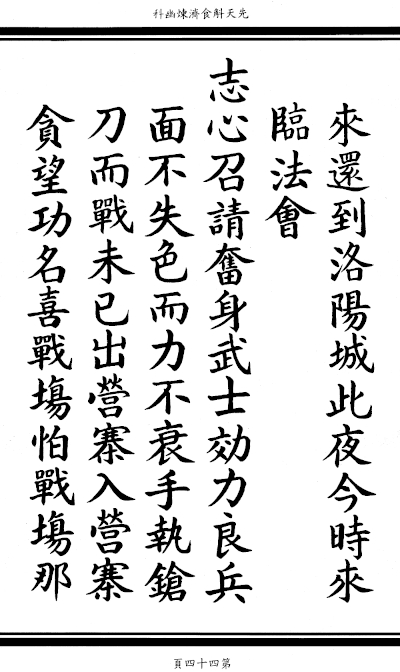 先天斛食濟煉幽科
來還到洛陽城此夜今時來
臨法會
志心召請奮身武士効力良兵
面不失色而力不衰手執鎗
刀而戰未已出營寨入營寨
貪望功名喜戰塲怕戰塲那
第四十四頁